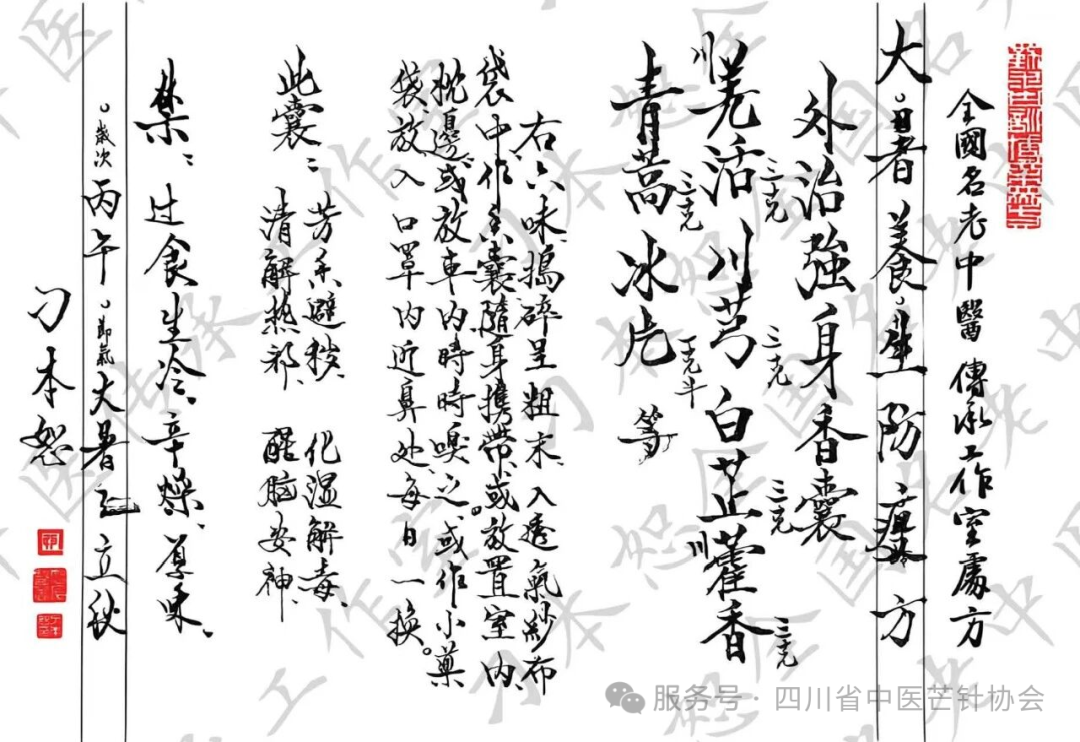 全國名老中醫傳承工作室處方
大暑養生防疫方
外治強身香囊
川羌活三克 川芎三克 白芷三克 川藿香三克
青蒿三克 冰片一克半 等
右六味、搗碎呈粗末、入透氣紗布
袋中作香囊隨身携帶、或放置室内、
枕邊、或放車内時時嗅之。或作小藥
袋放入口罩内近鼻处、每日一換。
此囊：芳香避穢、化湿解毒、
清解热邪、醒脑安神、
禁：过食生冷、辛燥、厚味、
歲次丙午。節氣大暑至立秋
刁本恕
服务号 · 四川省中医芒针协会